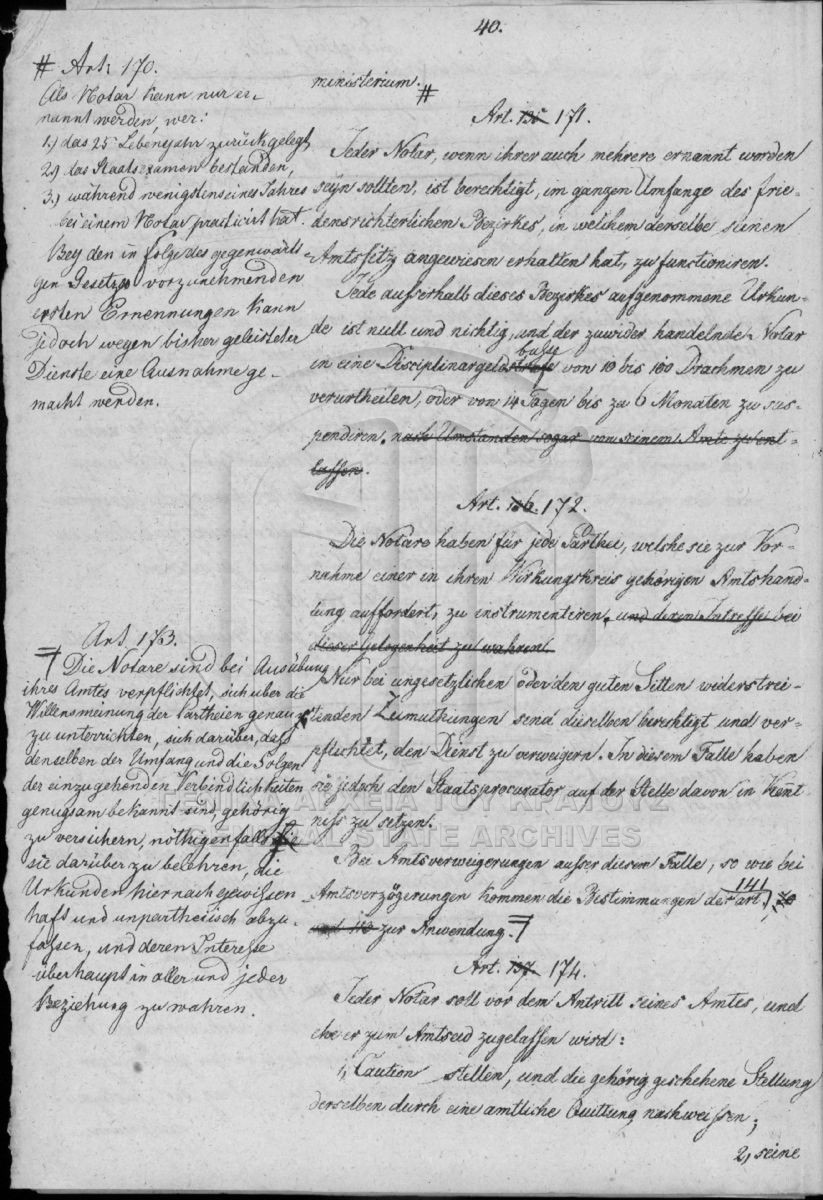 40.
# Art: 170.
Als Notar kann nur er-
nannt werden, wer:
1.) das 25te Lebensjahr zurückgelegt,
2.) das Staatsexamen bestanden,
3.) während wenigstens eines Jahres
bei einem Notar practicirt hat.
Bey den in folge des gegenwärti-
gen Gesetzes vorzunehmenden
ersten Ernennungen kann
jedoch wegen bisher geleisteter
Dienste eine Ausnahme ge-
macht werden.
ministerium. #
Art. 135 171.
Jeder Notar, wenn ihrer auch mehrere ernannt worden
seÿn sollten, ist berechtigt, im ganzen Umfange des frie-
densrichterlichen Bezirkes, in welchem derselbe seinen
Amtssitz angewiesen erhalten hat, zu functioniren.
Jede ausserhalb dieses Bezirkes aufgenommene Urkun-
de ist null und nichtig, und der zuwider handelnde Notar
in eine Disciplinargeldstrafe busse von 10 bis 100 Drachmen zu
verurtheilen, oder von 14 Tagen bis zu 6 Monaten zu sus-
pendiren. nach Umständen sogar von seinem Amte zu ent-
lassen.
Art. 136. 172.
Die Notare haben für jede Parthei, welche sie zur Vor-
nahme einer in ihren Wirkungskreis gehörigen Amtshand-
lung auffordert, zu instrumentiren. und deren Intresse bei
dieser Gelegenheit zu wahren.
Nur bei ungesetzlichen oder den guten Sitten widerstrei-
tenden Zumuthungen sind dieselben berechtigt und ver-
pflichtet, den Dienst zu verweigern. In diesem Falle haben
sie jedoch den Staatsprocurator auf der Stelle davon in Kent
niss zu setzen.
Bei Amtsverweigerungen ausser diesem Falle, so wie bei
Amtsverzögerungen kommen die Bestimmungen des art. 141
und 113 zur Anwendung.
Art. 1763.
Die Notare sind bei Ausübung
ihres Amtes verpflichtet, sich über die
Willensmeinung der Partheien genau
zu unterrichten, sich darüber, dass
denselben der Umfang und die Folgen
der einzugehenden Verbindlichkeiten
genugsam bekannt sind, gehörig
zu versichern, nöthigenfalls
sie darüber zu belehren, die
Urkunden hiernach gewissen
haft und unpartheiisch abzu-
fassen, und deren Interesse
überhaupt in aller und jeder
Beziehung zu wahren.
Art. 137. 174.
Jeder Notar soll vor dem Antritt seines Amtes, und
ehe er zum Amtseid zugelassen wird:
1, Caution stellen, und die gehörig geschehene Stellung
derselben durch eine amtliche Quittung nachweissen;
2, seine
ΓΕΝΙΚΑ ΑΡΧΕΙΑ ΤΟΥ ΚΡΑΤΟΥΣ
GENERAL STATE ARCHIVES